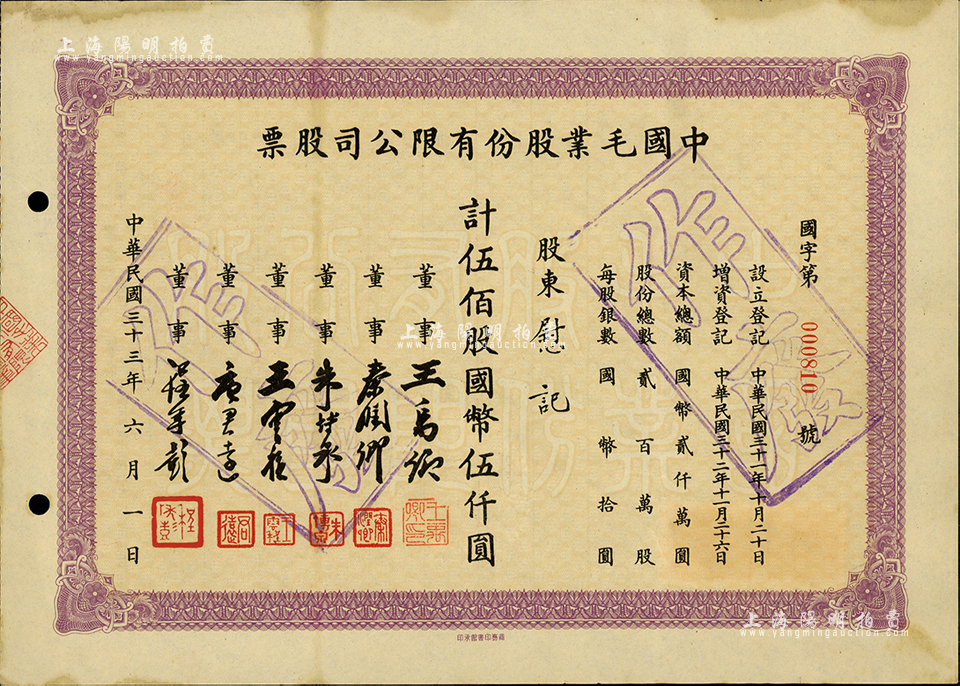 上海陽明拍賣
www.yangmingauction.com
中國毛業股份有限公司股票
國字第000810號
設立登記 中華民國三十一年十月二十日
增資登記 中華民國三十二年十一月二十六日
資本總額 國幣貳仟萬圓
股份總數 貳百萬股
每股銀數 國幣拾圓
股東慰記
計伍佰股國幣伍仟圓
董事
董事 秦潤卿
董事
董事 王雲程
董事 唐君遠
董事 程年彭
中華民國三十三年六月一日
作廢
作廢
上海陽明拍賣
www.yangmingauction.com
上海陽明拍賣
www.yangmingauction.com